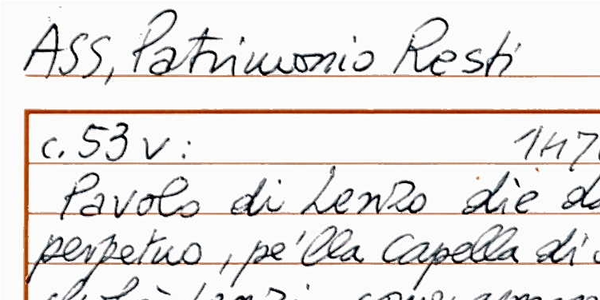 ASS, Patrimonio Resti
c. 53 v: 147
Pavolo di Lenzo die da
perpetuo, pe'lla capella di